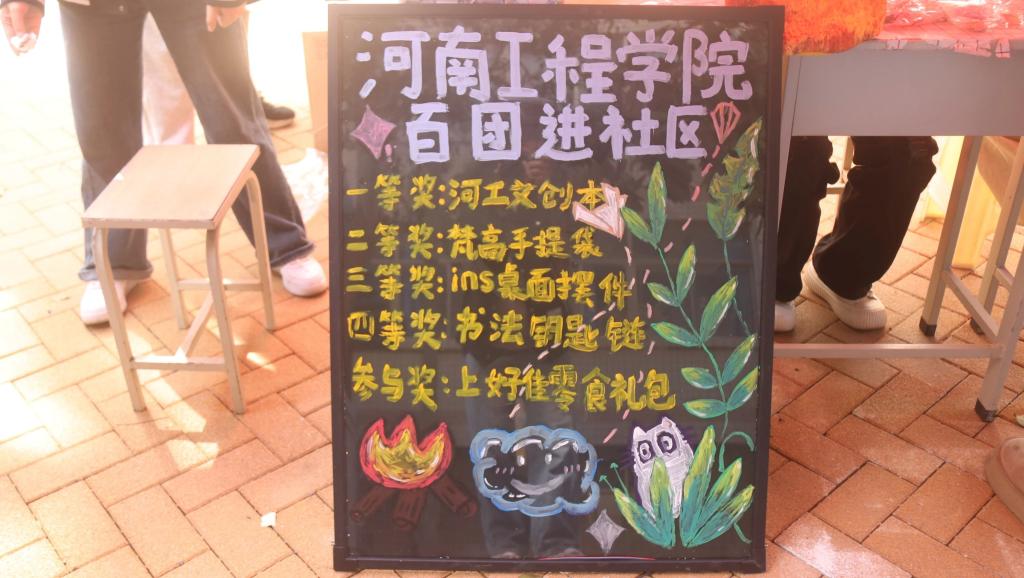 河南工程学院
百团进社区
一等奖:河工文创本
二等奖:梵高手提袋
三等奖:ins桌面摆件
四等奖:书法钥匙链
参与奖:上好佳零食礼包